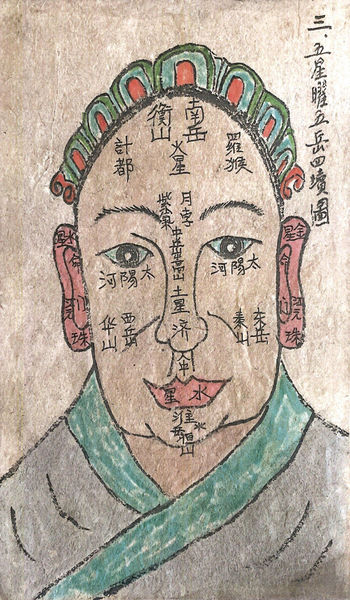 三、五星曜五岳四瀆圖
南岳
衡山
火星
羅猴
計都
月孛
紫氣
中岳嵩山
土星
太陽河
太陽河
东岳
泰山
西岳
华山
济
水星
淮水
恒山
金星
命
珠
命
珠